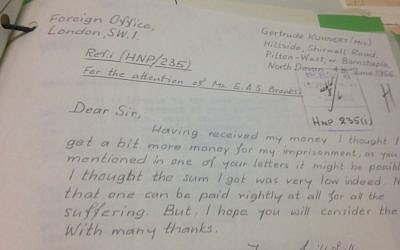 Foreign Office,
London, S.W.1.
Gertrude Kunnert (Mrs)
Hillside, Shirwell Road,
Pilton-West, Barnstaple,
North Devon
June 1966
Ref.: (HNP/235)
For the attention of Mr. E.A.S. Brooks:
HNP 235(1)
H
Dear Sir,
Having received my money I thought I
get a bit more money for my imprisonment, as you
mentioned in one of your letters it might be
I thought the sum I got was very low indeed.
that one can be paid rightly at all for all the
suffering. But, I hope you will consider the
With many thanks.